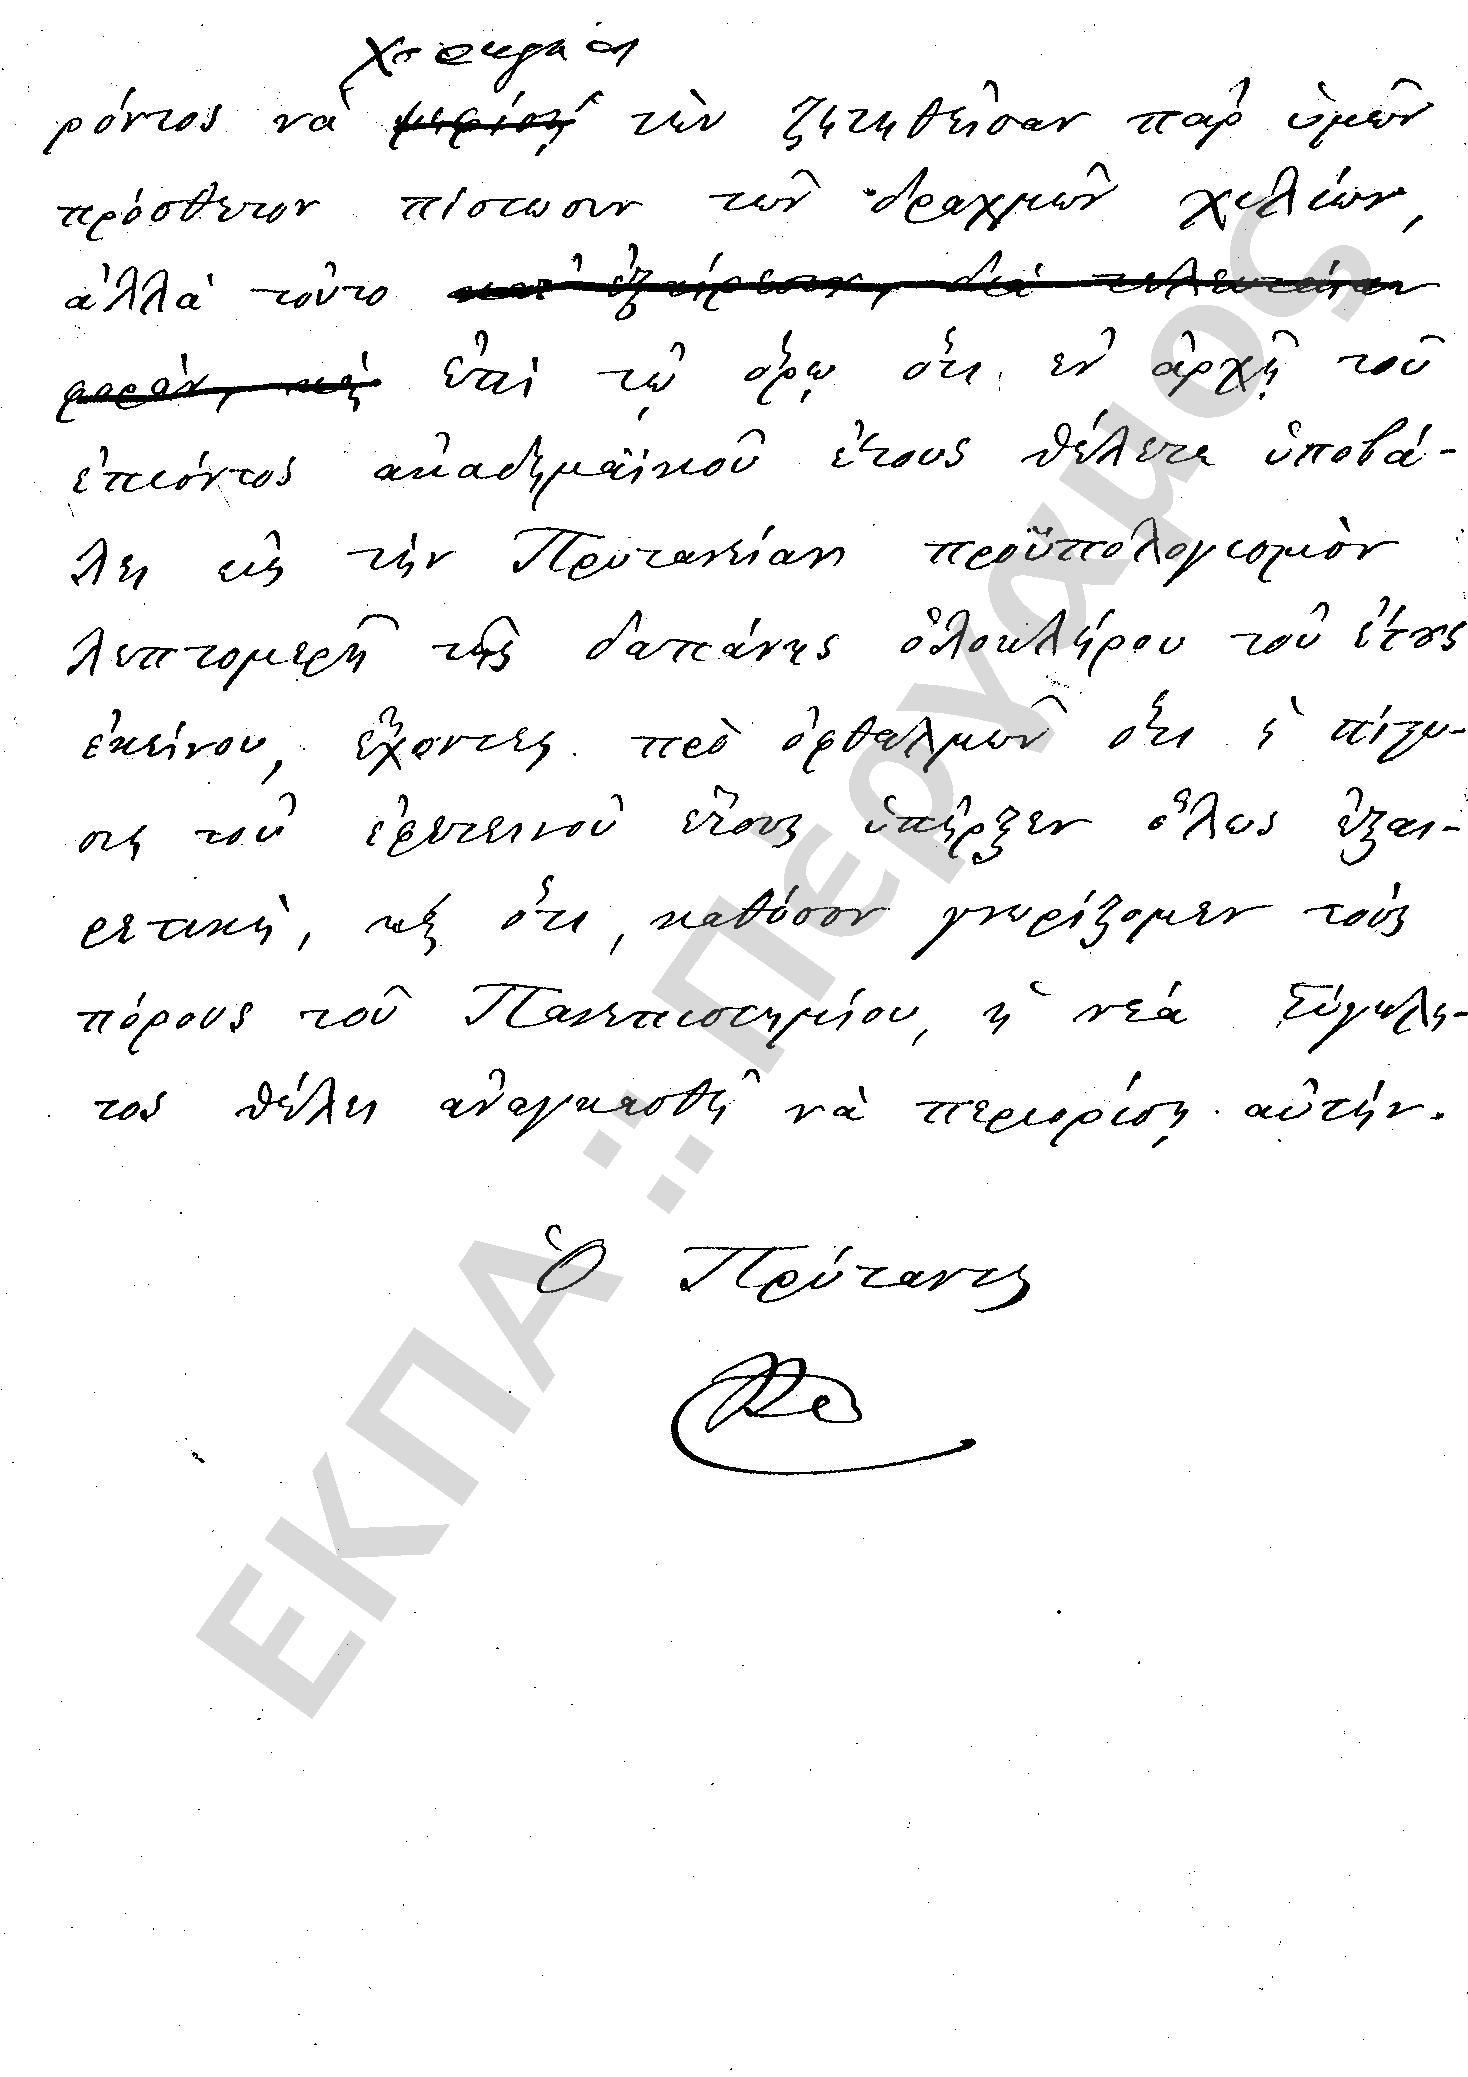 χορηγήσῃ
ρόντος νὰ ψηφίσῃ τὴν ζητηθεῖσαν παρ' ὑμῶν
πρόσθετον πίστωσιν τῶν δραχμῶν χιλίων,
ἀλλὰ τοῦτο κατ' ἐξαίρεσιν, διὰ τελευταίαν
φορὰν, καὶ ἐπὶ τῷ ὅρῳ ὅτι ἐν ἀρχῇ τοῦ
ἐπιόντος ἀκαδημαϊκοῦ ἔτους θέλετε ὑποβά-
λει εἰς τὴν Πρυτανείαν προϋπολογισμὸν
λεπτομερῆ τῆς δαπάνης ὁλοκλήρου τοῦ ἔτους
ἐκείνου, ἔχοντες πρὸ ὀφθαλμῶν ὅτι ἡ πίστω-
σις τοῦ ἐφετεινοῦ ἔτους ὑπῆρξεν ὅλως ἐξαι-
ρετική, καὶ ὅτι, καθόσον γνωρίζομεν τοὺς
πόρους τοῦ Πανεπιστημίου, ἡ νέα Σύγκλη-
τος θέλει ἀναγκασθῆ νὰ περιορίσῃ αὐτήν.
Ὁ Πρύτανις
ΕΚΠΑ :: Πέργαμος